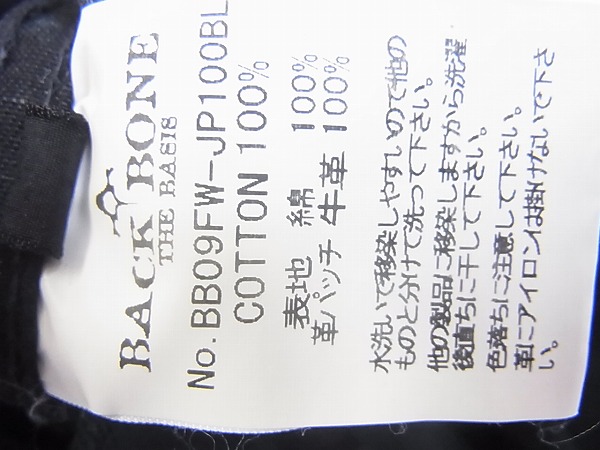 BACK BONE
THE BASIS
No.BB09FW-JP100BL
COTTON 100%
表地 綿 100%
革パッチ 牛革 100%
水洗いで移染しやすいので他の
ものと分けて洗って下さい。
他の製品に移染しますから洗濯
後直ちに干して下さい。
色落ちに注意して下さい。
革にアイロンは掛けないで下さ
い。